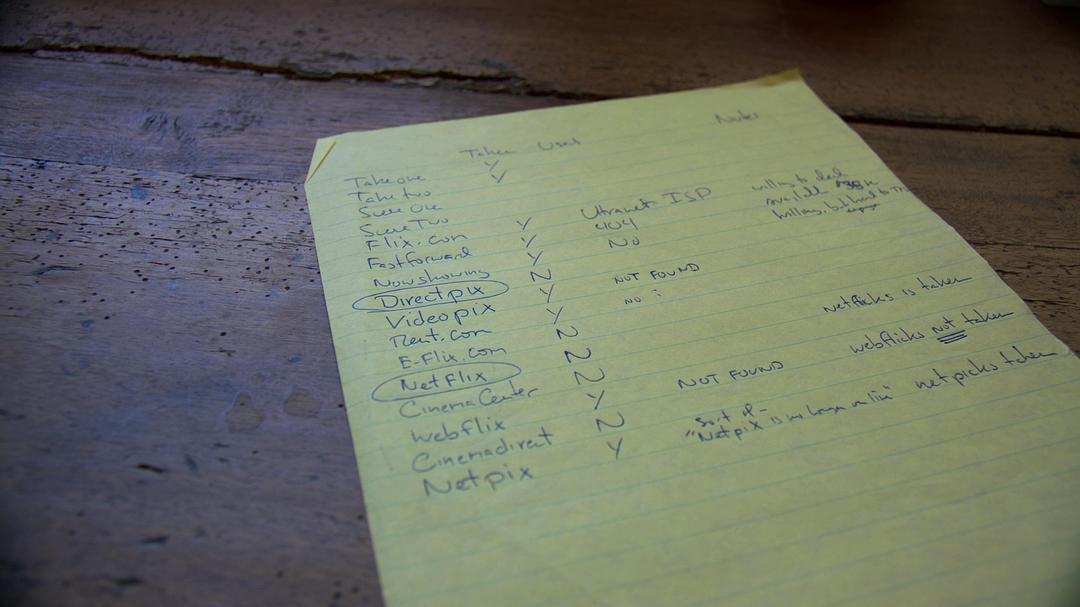 Taken Used Notes
Take one Y
Take two Y
Scene One
Scene Two
Flix.com Y Ultranet ISP willing to deal
Fastforward Y 404 available
Nowshowing Y No
Directpix N NOT FOUND
Videopix Y no :
Rent.com Y
E-Flix.com N
NetFlix N netflicks is taken
CinemaCenter N
webflix Y webflicks not taken
Cinemadirect N NOT FOUND
Netpix Y "Sort of - Netpix is no longer on line" netpicks taken